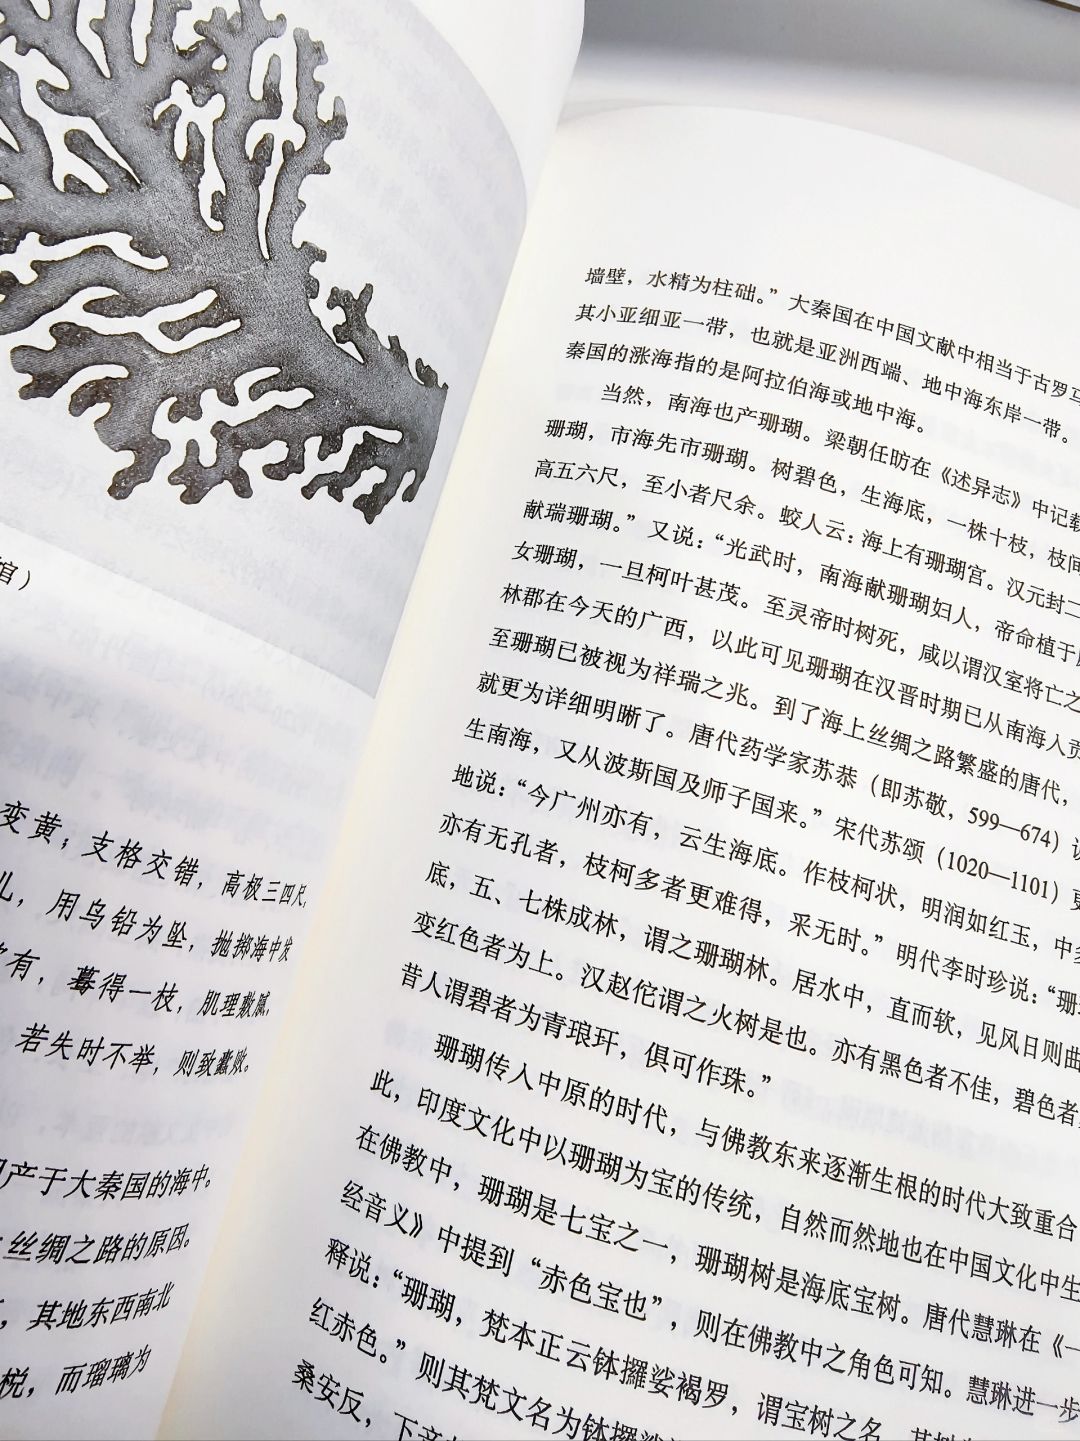 馆）
变黄；支格交错，高极三四尺，
儿，用乌铅为坠，抛掷海中发
有，蓦得一枝，肌理敷腻，
若失时不举，则致蠹败。
产于大秦国的海中。
丝绸之路的原因。
其地东西南北
棁，而瑠璃为
墙壁，水精为柱础。”大秦国在中国文献中相当于古罗马
其小亚细亚一带，也就是亚洲西端、地中海东岸一带。
秦国的涨海指的是阿拉伯海或地中海。
当然，南海也产珊瑚。梁朝任昉在《述异志》中记载
珊瑚，市海先市珊瑚。树碧色，生海底，一株十枝，枝间
高五六尺，至小者尺余。蛟人云：海上有珊瑚宫。汉元封二
献瑞珊瑚。”又说：“光武时，南海献珊瑚妇人，帝命植于
女珊瑚，一旦柯叶甚茂。至灵帝时树死，咸以谓汉室将亡之
林郡在今天的广西，以此可见珊瑚在汉晋时期已从南海入贡
至珊瑚已被视为祥瑞之兆。到了海上丝绸之路繁盛的唐代，
就更为详细明晰了。唐代药学家苏恭（即苏敬，599—674）
生南海，又从波斯国及师子国来。”宋代苏颂（1020—1101）更
地说：“今广州亦有，云生海底。作枝柯状，明润如红玉，中多
亦有无孔者，枝柯多者更难得，采无时。”明代李时珍说：“珊
底，五、七株成林，谓之珊瑚林。居水中，直而软，见风日则曲
变红色者为上。汉赵佗谓之火树是也。亦有黑色者不佳，碧色者
昔人谓碧者为青琅玕，俱可作珠。”
珊瑚传入中原的时代，与佛教东来逐渐生根的时代大致重合
此，印度文化中以珊瑚为宝的传统，自然而然地也在中国文化中生
在佛教中，珊瑚是七宝之一，珊瑚树是海底宝树。唐代慧琳在《一
经音义》中提到“赤色宝也”，则在佛教中之角色可知。慧琳进一步
释说：“珊瑚，梵本正云钵攞娑褐罗，谓宝树之名，其树
红赤色。”则其梵文名为钵攞娑
桑安反，下音